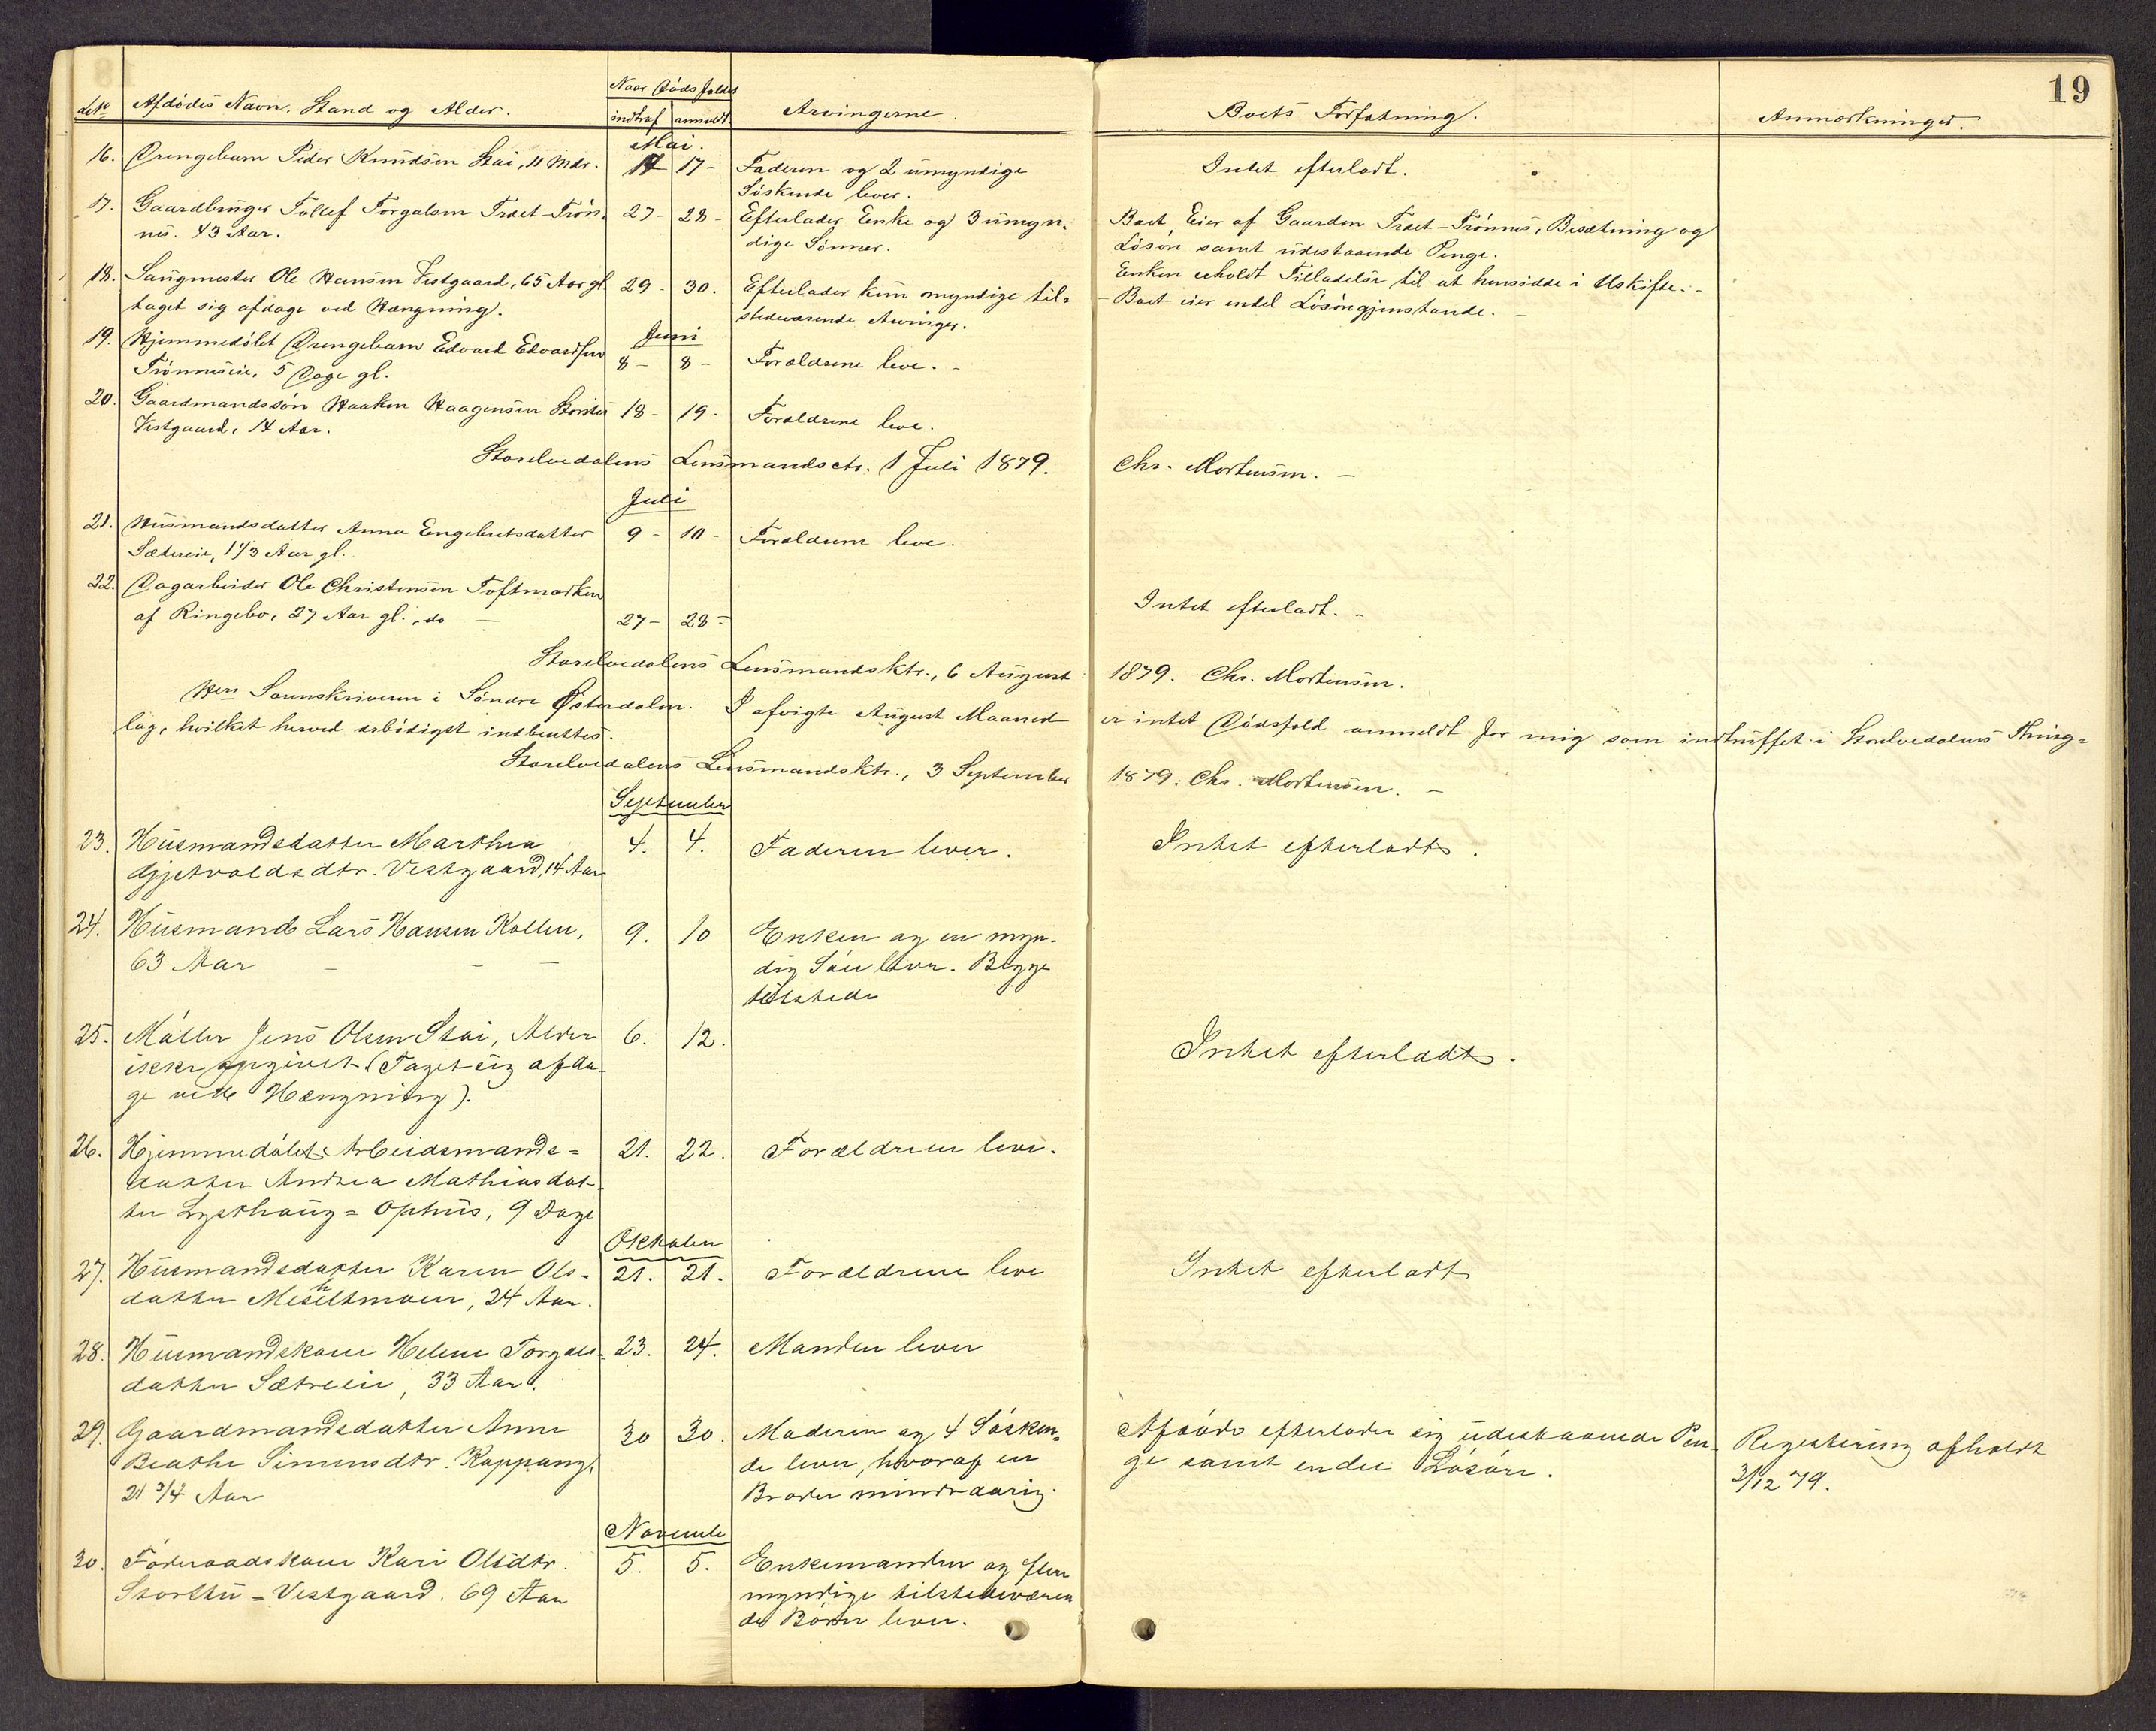 19
Lb.No Afdødes Navn, Stand og Alder. Naar Dødsfaldet indtraf anmeldt Arvingerne. Boets Forfatning. Anmærkninger.
Mai.
16. Drengebarn Peder Knudsen Stai, 11 Mdr. 14 17- Faderen og 2 umyndige Intet efterladt.
Søskende lever.
17. Gaardbruger Tollef Torgalsen Træt-Trøn- 27- 28- Efterlader Enke og 3 umyn- Boet Eier af Gaarden Træt-Trønnes, Besætning og
næs. 43 Aar. dige Sønner. Løsøre samt udestaaende Penge.
Enken erholdt Tilladelse til at hensidde i Uskifte. -
18. Sangmester Ole Hansen Vestgaard, 65 Aar gl. 29- 30. Efterlader kun myndige til- - Boet eier endel Løsøregjenstande. -
taget sig afdage ved Hængning. stedeværende Arvinger.
Juni
19. Hjemmedøbt Drengebarn Edvard Edvardsen 8- 8- Forældrene leve. -
Trønneseie, 5 Dage gl.
20. Gaardmandssøn Haaken Haagensen Storstu 18- 19- Forældrene leve.
Vestgaard, 14 Aar.
Storelvedalens Lensmandsctr. 1 Juli 1879. Chr. Mortensen. -
Juli
21. Husmandsdatter Anna Engebretsdatter 9- 10- Forældrene leve.
Sætereie, 1 1/3 Aar gl.
22. Dagarbeider Ole Christensen Toftmarken
af Ringebo, 27 Aar gl., do - 27- 28- Intet efterladt. -
Storelvedalens Lensmandsktr., 6 August 1879. Chr. Mortensen.
Herr Sorenskriveren i Søndre Østerdalen. I afvigte August Maaned er intet Dødsfald anmeldt for mig som indtruffet i Storelvedalens Thing-
lag, hvilket herved ærbødigst indberettes.
Storelvedalens Lensmandsktr., 3 September 1879. Chr. Mortensen. -
September
23. Husmandsdatter Marthea 4. 4. Faderen lever. Intet efterladt.
Gjetvoldsdtr. Vestgaard, 14 Aar
24. Husmand Lars Hansen Kollen, 9. 10 Enken og en myn-
63 Aar - - - dig Søn lever. Begge
tilstede
25. Møller Jens Olsen Stai, Alder 6. 12. Intet efterladt.
ikke opgivet. (Taget sig afda-
ge ved Hængning).
26. Hjemmedøbt Arbeidsmands- 21. 22. Forældrene leve.
datter Andrea Mathiasdat-
ter Lysthaug-Ophus, 9 Dage
Oktober
27. Husmandsdatter Karen Ols- 21. 21. Forældrene leve Intet efterladt
datter Meseltmoen, 24 Aar.
28. Husmandskone Helene Torgals- 23. 24. Manden lever
datter Sætreeie, 33 Aar.
29. Gaardmandsdatter Anne 30 30. Moderen og 4 Søsken- Afdøde efterlader sig udestaaende Pen- Registering afholdt
Beathe Simensdtr. Koppang, de lever, hvoraf en ge samt endel Løsøre. 3/12 79.
21 3/4 Aar Broder mindreaarig.
November
30. Føderaadskone Kari Olsdtr. 5. 5. Enkemanden og flere
Storstu-Vestgaard. 69 Aar myndige tilstedeværen
de Børn lever.